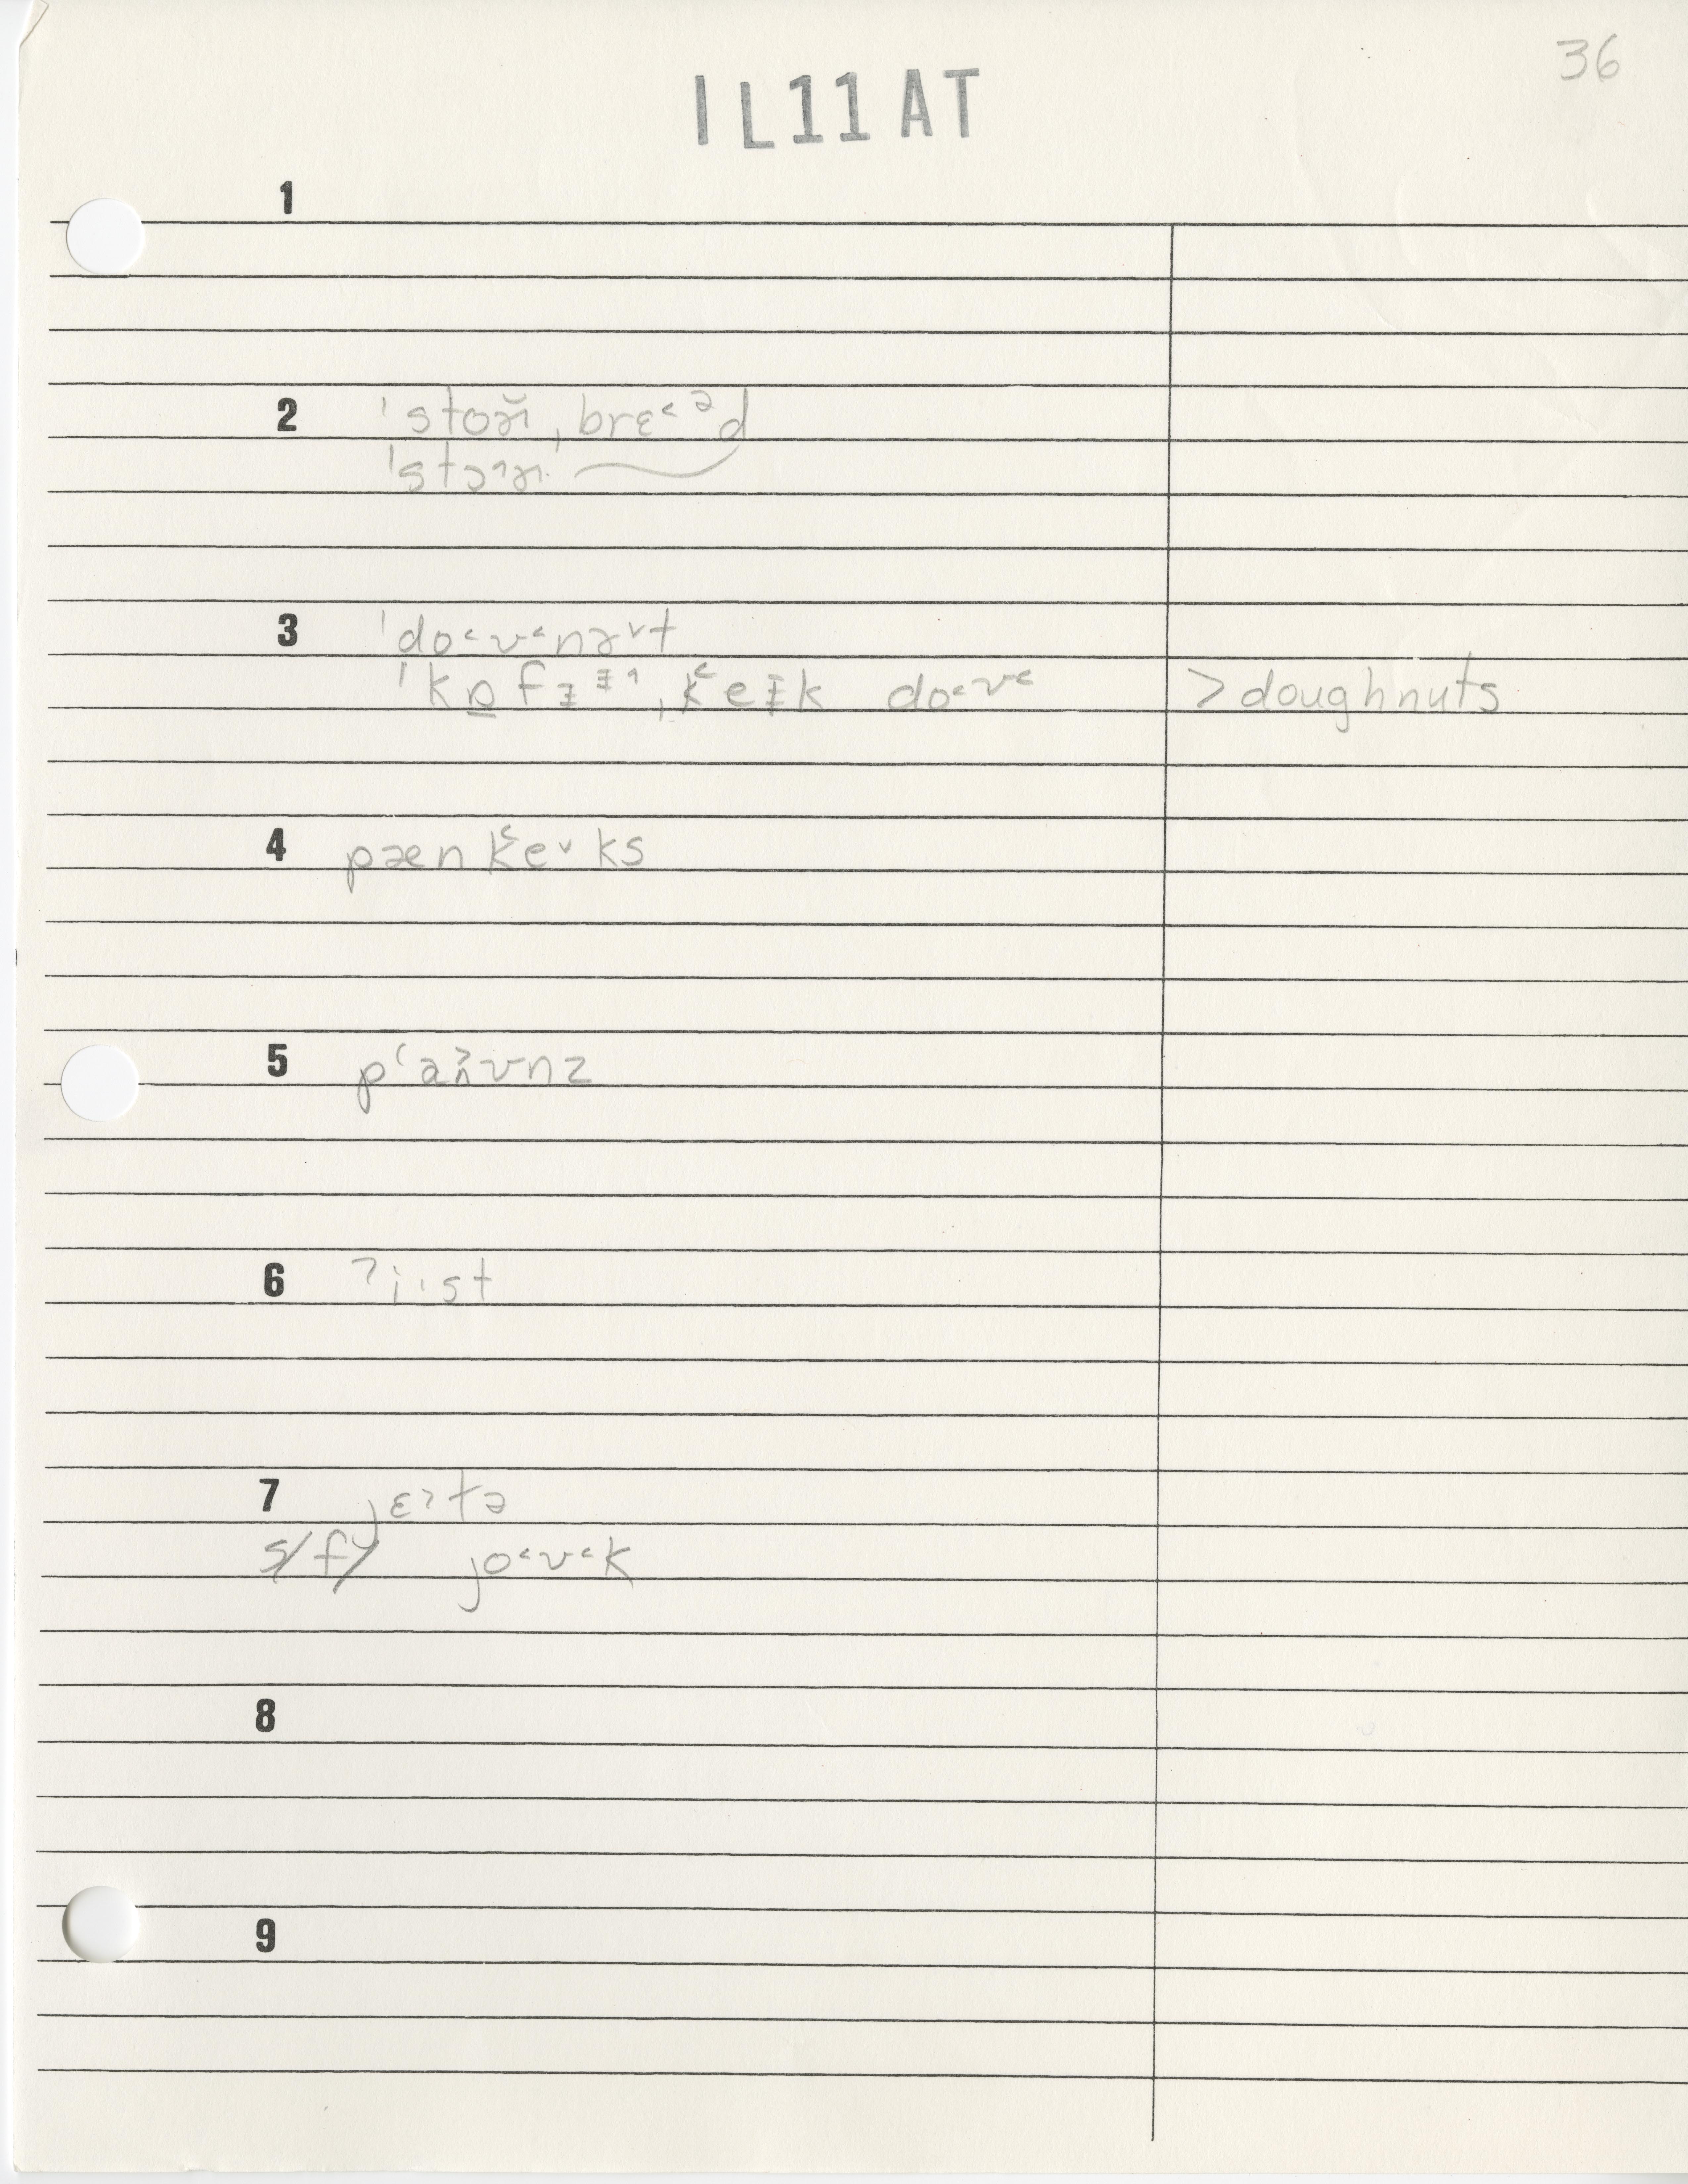 36
IL11AT
1
2 ˈstoɚ̆ ˌbrɛ˂ᵊd
ˈstɔ˄ɚ
3 ˈdo˂ʊ˂nə˅t
ˈkɒ̱fɪ ˌk˂eɪk do˂ʊ˂ >doughnuts
4 pæn k˂e˅ks
5 pʻaʊnz
6 ʔist
7 jɛ˃tə
s/fy jo˂ʊ˂k
8
9